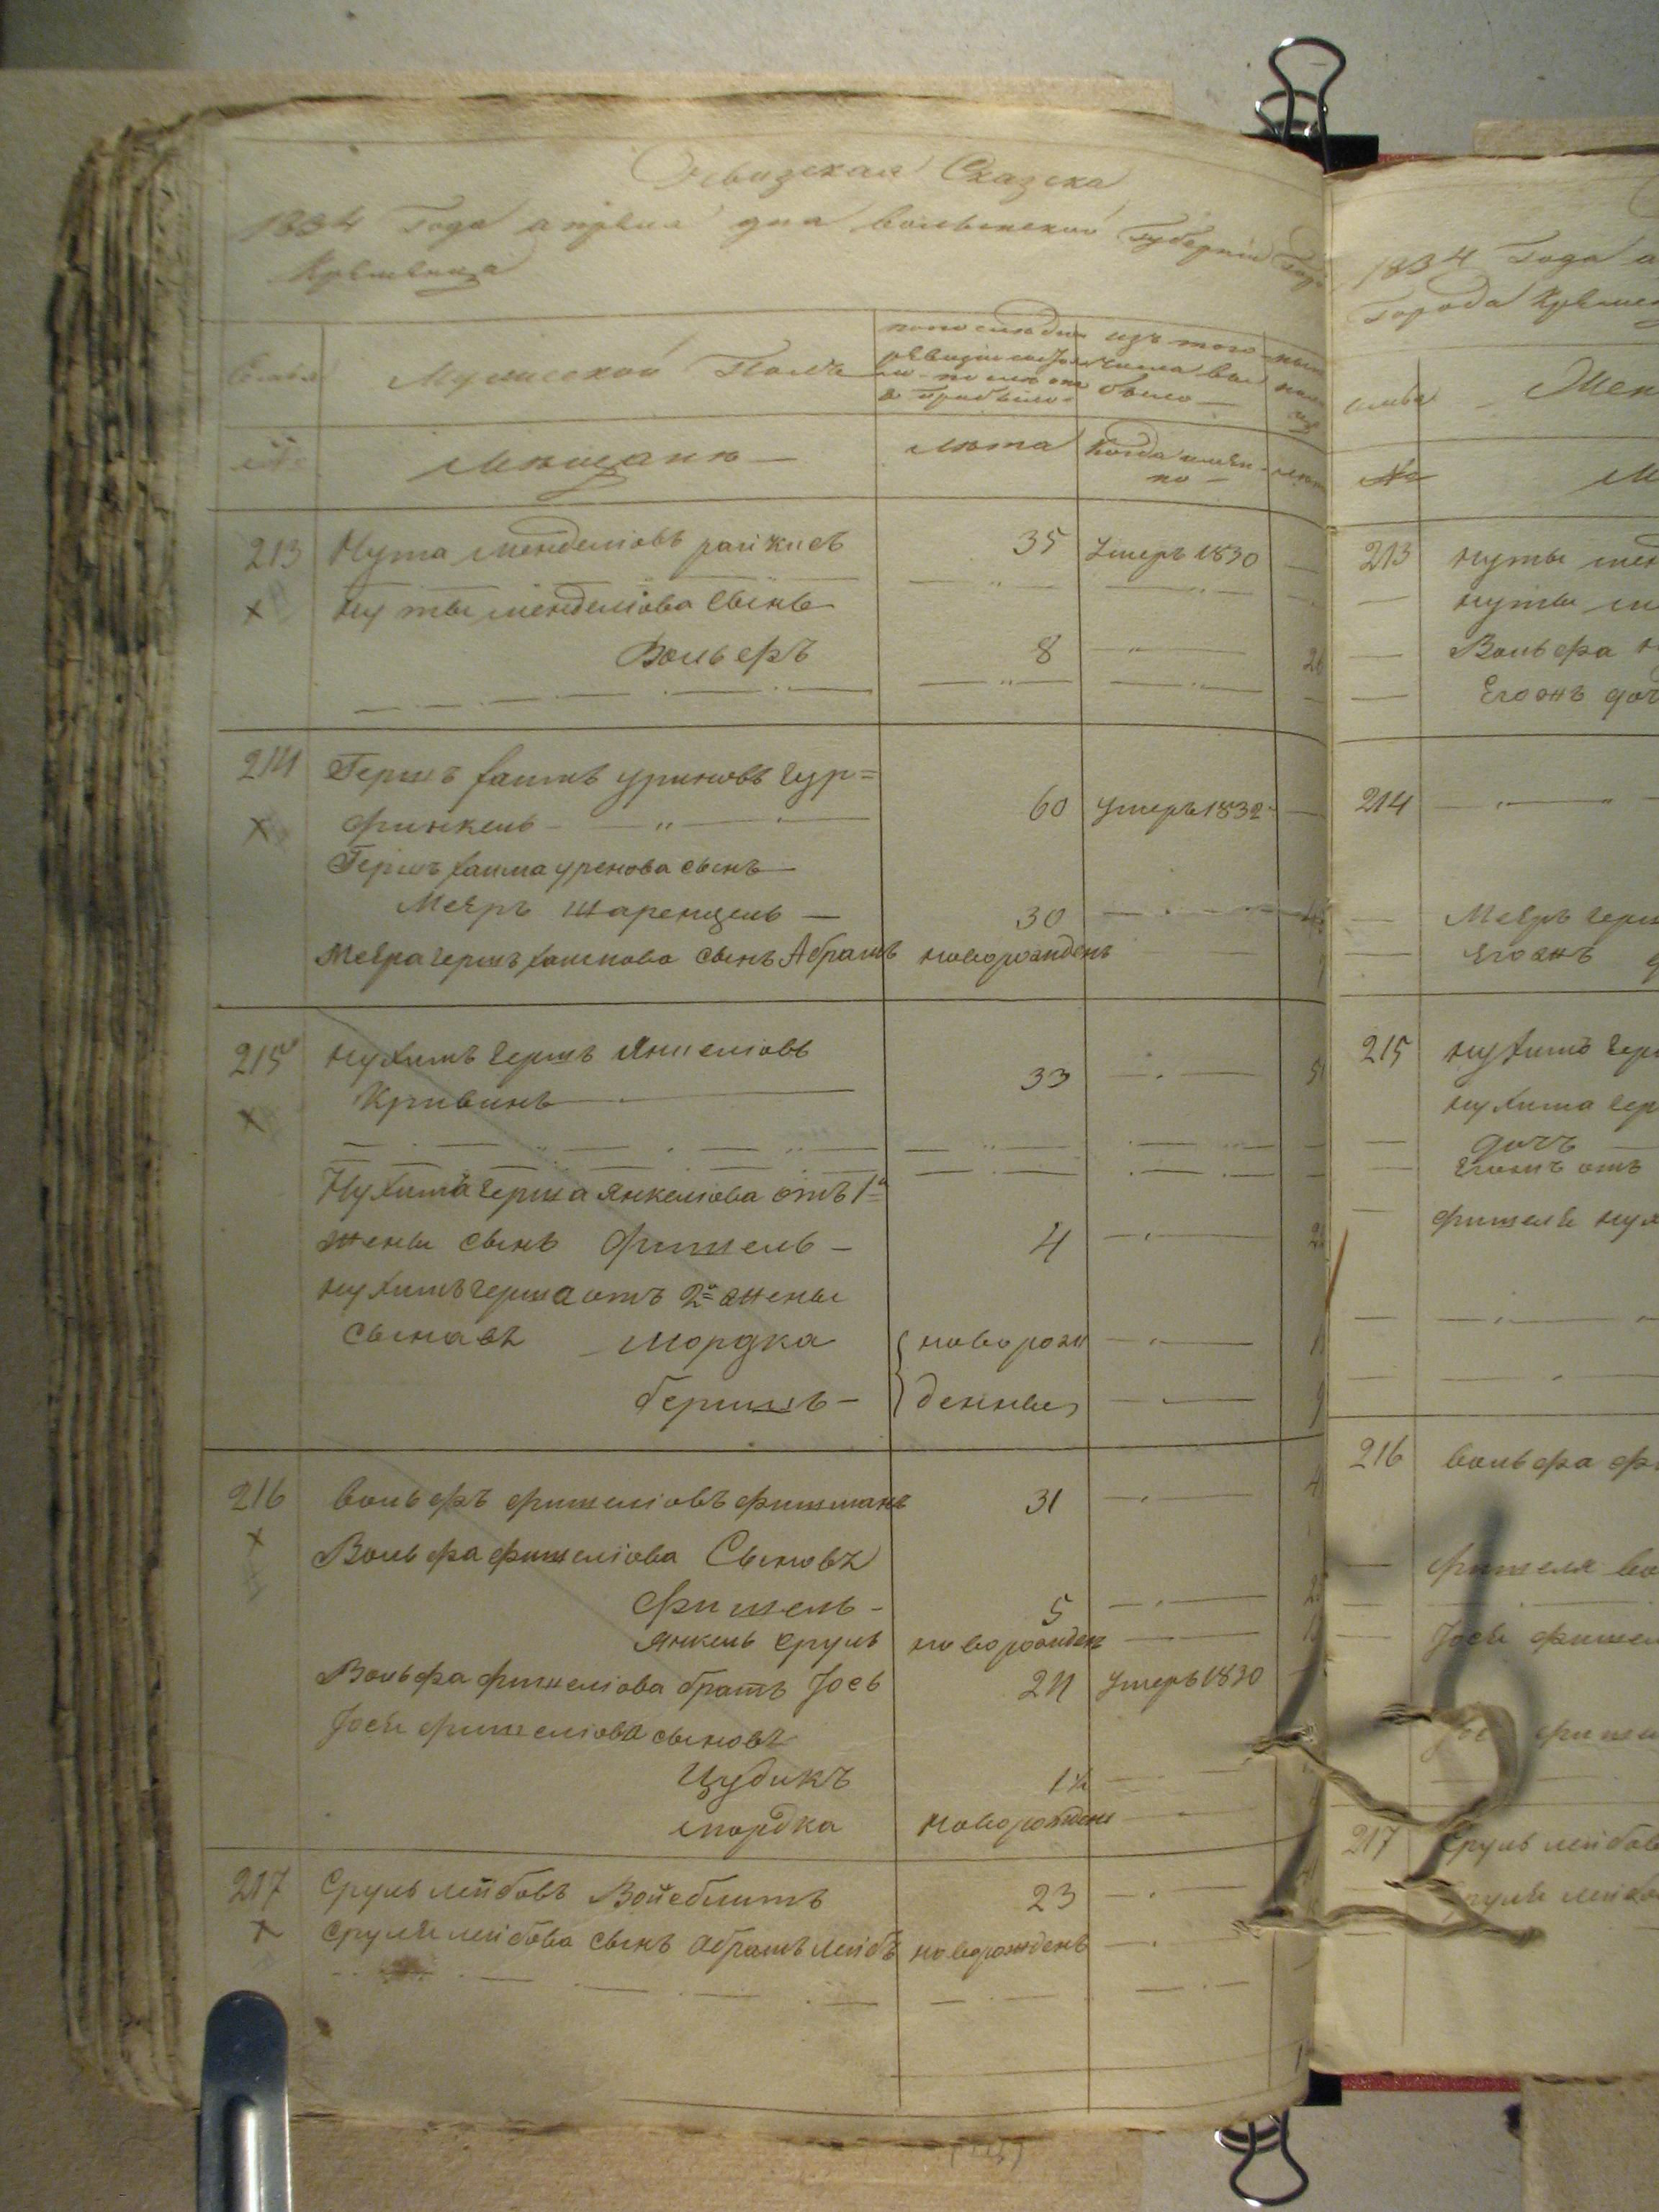 Ревизская Сказка
1834 Года апреля дня Волынской Губернiи Гор
Кременца
Семьи
Мужеской Полъ
по последней ревизiи состояло и после оной прибыло
изъ того числа выбыло
№
Мещане
лета
Когда имянно
лета
213 Нута Менделiовъ райжисъ 35 Умеръ 1830
Нуты Менделiова Сынъ
Вольфъ 8
214 Гершъ Хаимъ уриновъ Гур=
финкель 60 Умеръ 1832
Гершъ Хаима уренова сынъ
Мееръ шаренцель 30
Меера Гершъ Хаимова сынъ Абрамъ новорожденъ
215 Нухимъ Гершъ Янкелiовъ
Кривинъ 33
Нухима Герша Янкелiова отъ 1й
жены сынъ Фишель 4
Нухимъ Герша отъ 2й жены
Сыновъ Мордка новорож
Бершъ денные
216 Вольфъ фишелiовъ фишманъ 31
Вольфа фишелiова Сыновъ
Фишель 5
Янкель Сруль новорожден
Вольфа фишелiова братъ Iось 24 Умеръ 1830
Iося фишелiова сыновъ
Цудикъ 1½
мордка новорожден
217 Сруль лейбовъ Войсблитъ 23
Сруля лейбова сынъ Абрамъ лейбъ новорожденъ
1834 Года а
Города Кремен
Жен
№
213 Нуты мен
Нуты м
Вольфа Н
Его жъ доч
214
Мееръ герш
Его жъ
215 Нухимъ гер
Нухима гер
дочъ
Его жъ отъ
фишеля нух
216 Вольфа фи
фишеля во
Iося фишел
Iос фишел
217 Сруль лейбов
Сруля лейбо